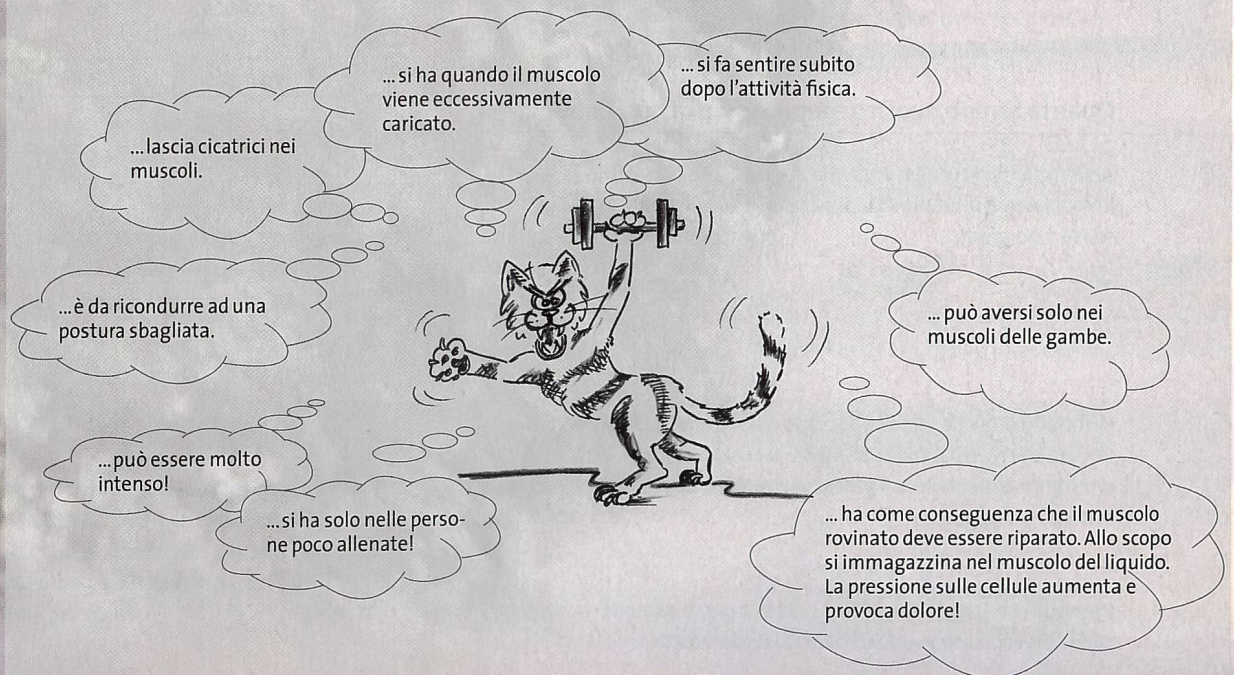 ... si ha quando il muscolo
viene eccessivamente
caricato.
... si fa sentire subito
dopo l'attività fisica.
... lascia cicatrici nei
muscoli.
... è da ricondurre ad una
postura sbagliata.
... può aversi solo nei
muscoli delle gambe.
... può essere molto
intenso!
... si ha solo nelle perso-
ne poco allenate!
... ha come conseguenza che il muscolo
rovinato deve essere riparato. Allo scopo
si immagazzina nel muscolo del liquido.
La pressione sulle cellule aumenta e
provoca dolore!